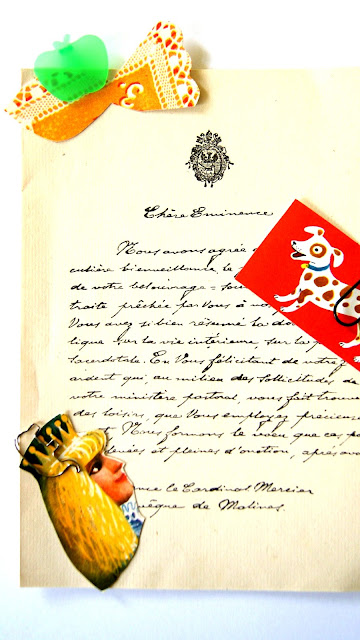 Chère Eminence
Nous avons agréé
culière bienveillance, le
de votre bel ouvrage
traité prêchée par Vous à nos
Vous avez si bien résumé la doc
lique sur la vie intérieure, sur la
sacerdotale. En Vous félicitant de votre
ardent qui, au milieu des sollicitudes de
votre ministère pastoral, vous fait trouver
des loisirs, que Vous employez précieuse
t. Nous formons le vœu que ces pa
denses et pleines d'onction, après avo
nce le Cardinal Mercier
vêque de Malines.